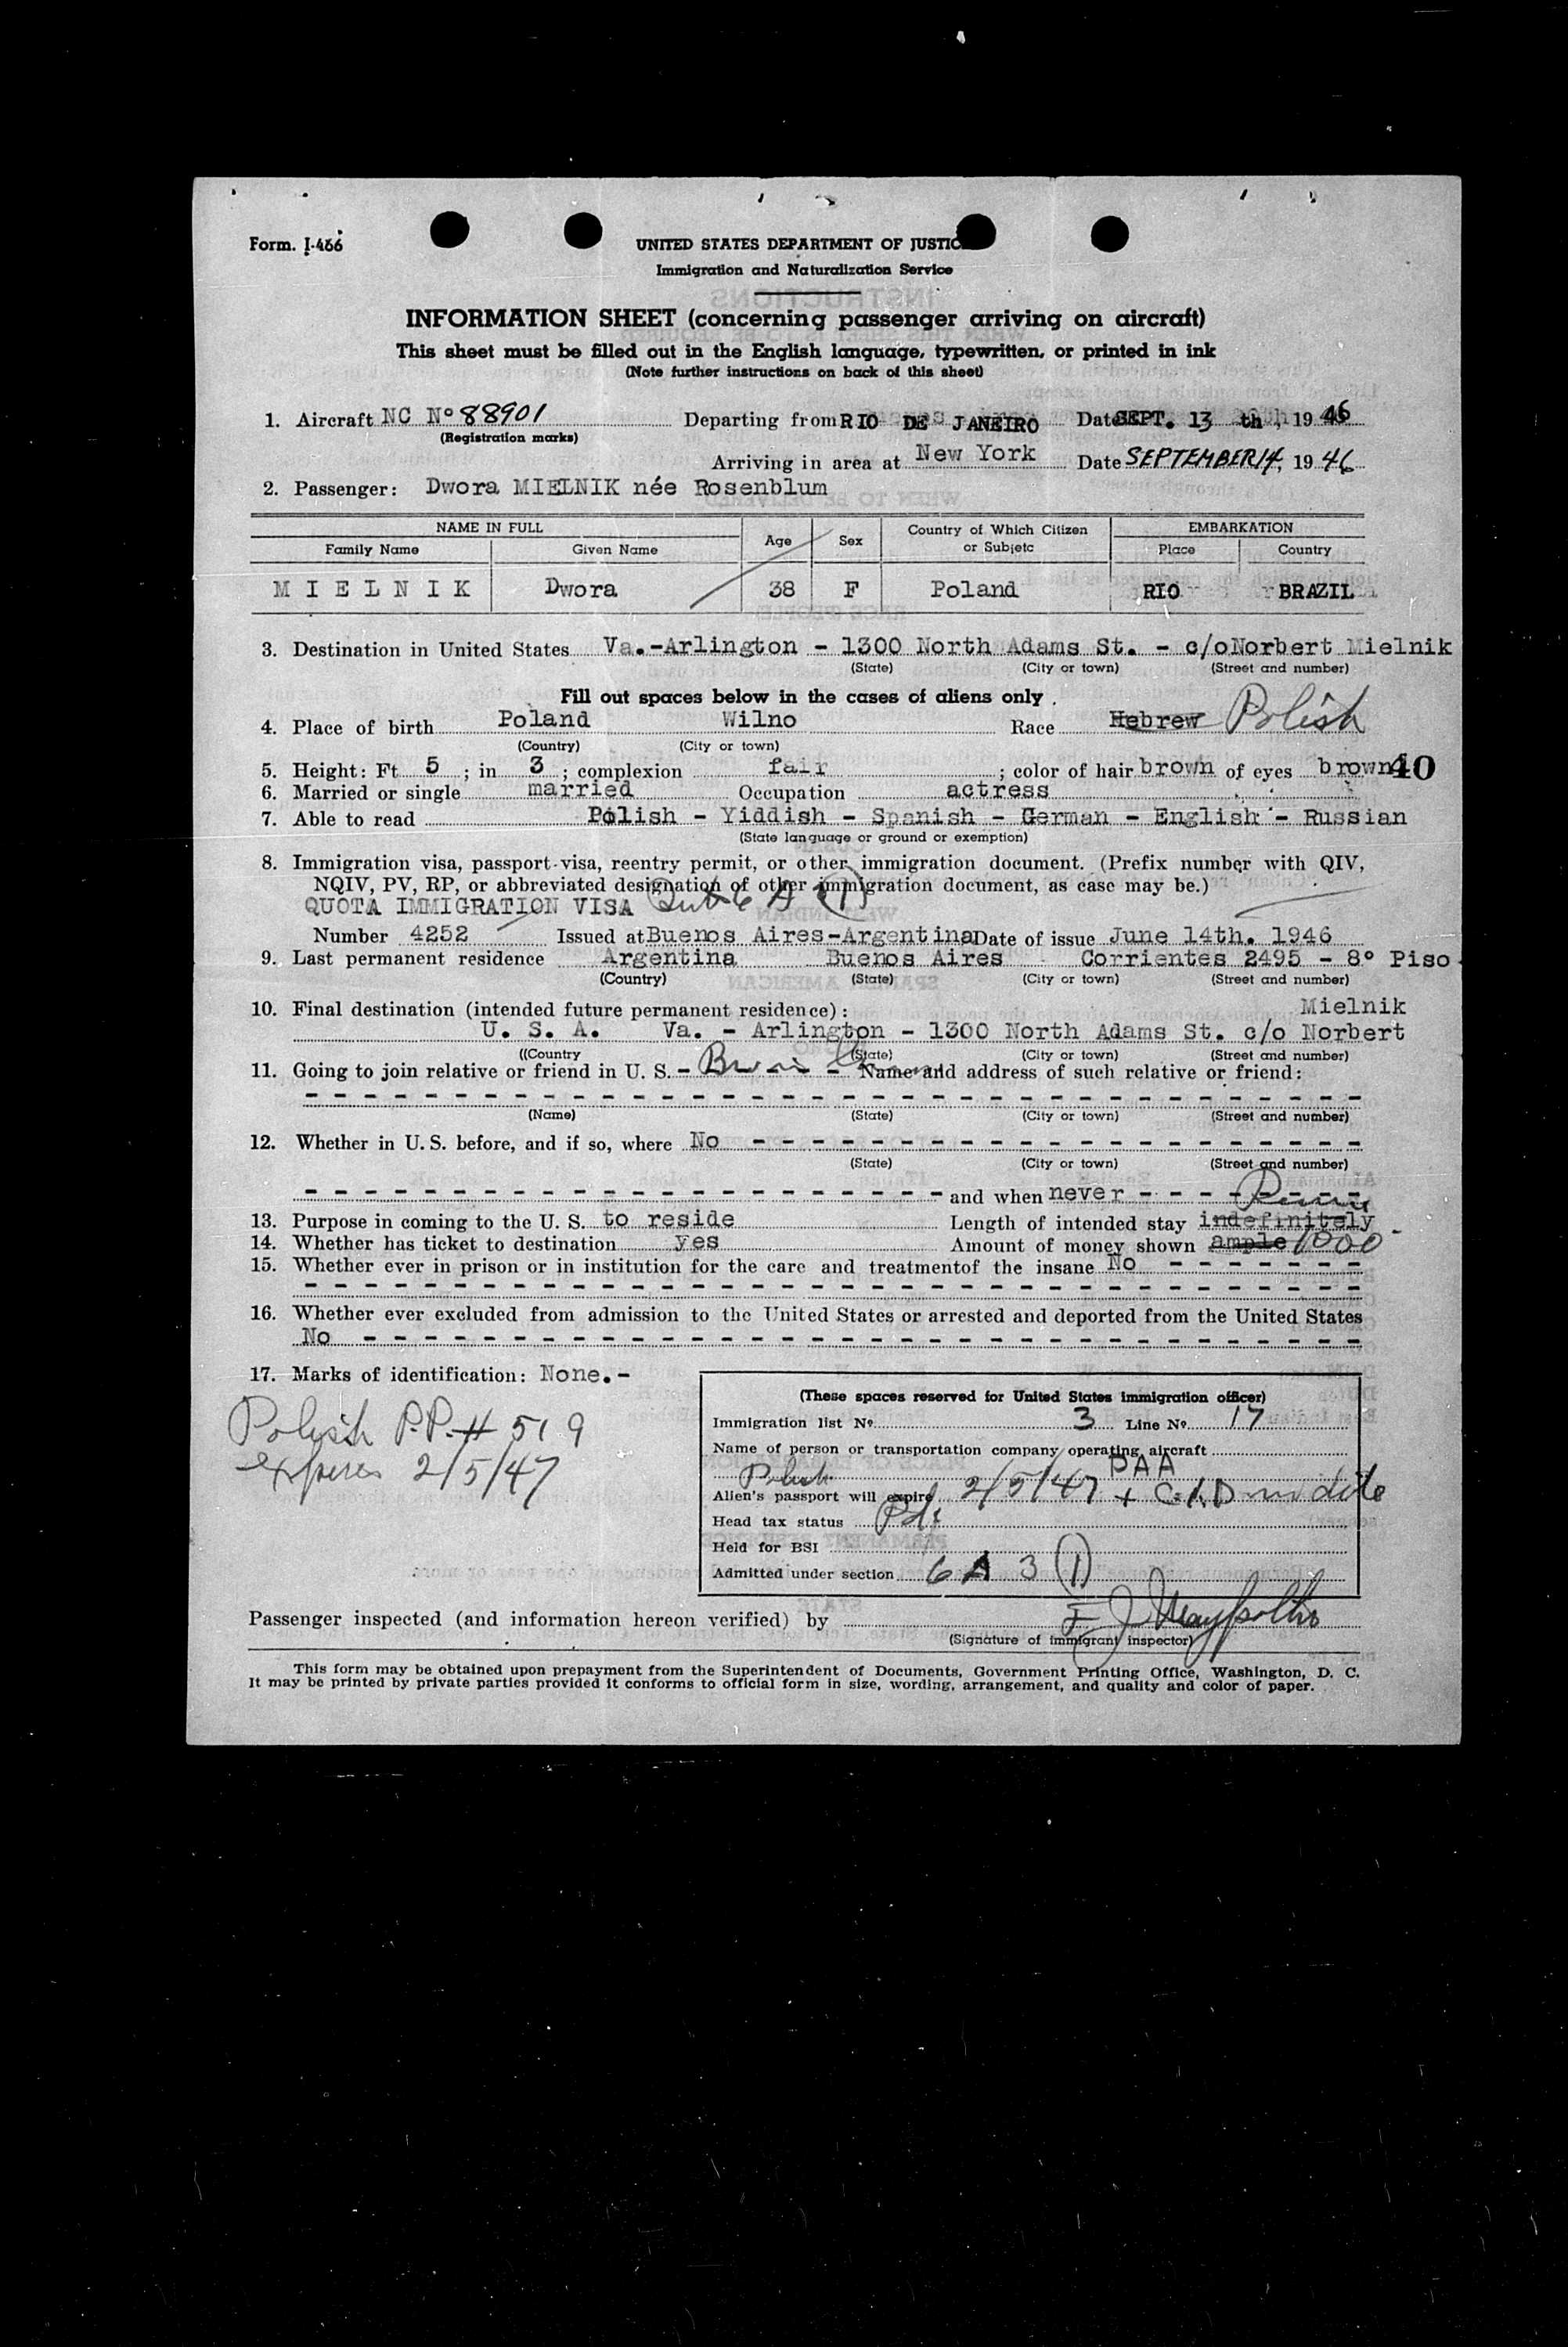 Form. I-466
UNITED STATES DEPARTMENT OF JUSTIC
Immigration and Naturalization Service
INFORMATION SHEET (concerning passenger arriving on aircraft)
This sheet must be filled out in the English language, typewritten, or printed in ink
(Note further instructions on back of this sheet)
1. Aircraft NC Nº 88901 Departing from RIO DE JANEIRO Date SEPT. 13 th, 19 46
(Registration marks)
Arriving in area at New York Date SEPTEMBER 14, 19 46
2. Passenger: Dwora MIELNIK née Rosenblum
NAME IN FULL Age Sex Country of Which Citizen or Subjetc EMBARKATION
Family Name Given Name Place Country
MIELNIK Dwora 38 F Poland RIO BRAZIL
3. Destination in United States Va.-Arlington - 1300 North Adams St. - c/oNorbert Mielnik
(State) (City or town) (Street and number)
Fill out spaces below in the cases of aliens only .
4. Place of birth Poland Wilno Race Hebrew Polish
(Country) (City or town)
5. Height: Ft 5 ; in 3 ; complexion fair ; color of hair brown of eyes brown 40
6. Married or single married Occupation actress
7. Able to read Polish - Yiddish - Spanish - German - English - Russian
(State language or ground or exemption)
8. Immigration visa, passport visa, reentry permit, or other immigration document. (Prefix number with QIV,
NQIV, PV, RP, or abbreviated designation of other immigration document, as case may be.)
QUOTA IMMIGRATION VISA
Number 4252 Issued at Buenos Aires-Argentina Date of issue June 14th. 1946
9. Last permanent residence Argentina Buenos Aires Corrientes 2495 - 8º Piso.
(Country) (State) (City or town) (Street and number)
10. Final destination (intended future permanent residence): Mielnik
U. S. A. Va. - Arlington - 1300 North Adams St. c/o Norbert
((Country (State) (City or town) (Street and number)
11. Going to join relative or friend in U. S. - - Name and address of such relative or friend:
(Name) (State) (City or town) (Street and number)
12. Whether in U. S. before, and if so, where No
(State) (City or town) (Street and number)
and when never
13. Purpose in coming to the U. S. to reside Length of intended stay indefinitely
14. Whether has ticket to destination yes Amount of money shown ample 1000
15. Whether ever in prison or in institution for the care and treatmentof the insane No
16. Whether ever excluded from admission to the United States or arrested and deported from the United States
No
17. Marks of identification: None.-
Polish P.P. # 519
expires 2/5/47
(These spaces reserved for United States immigration officer)
Immigration list Nº 3 Line Nº 17
Name of person or transportation company operating aircraft
PAA
Alien's passport will expire Polish 2/5/47
Head tax status Pd
Held for BSI
Admitted under section 6 A 3 (1)
Passenger inspected (and information hereon verified) by
(Signature of immigrant inspector)
This form may be obtained upon prepayment from the Superintendent of Documents, Government Printing Office, Washington, D. C.
It may be printed by private parties provided it conforms to official form in size, wording, arrangement, and quality and color of paper.